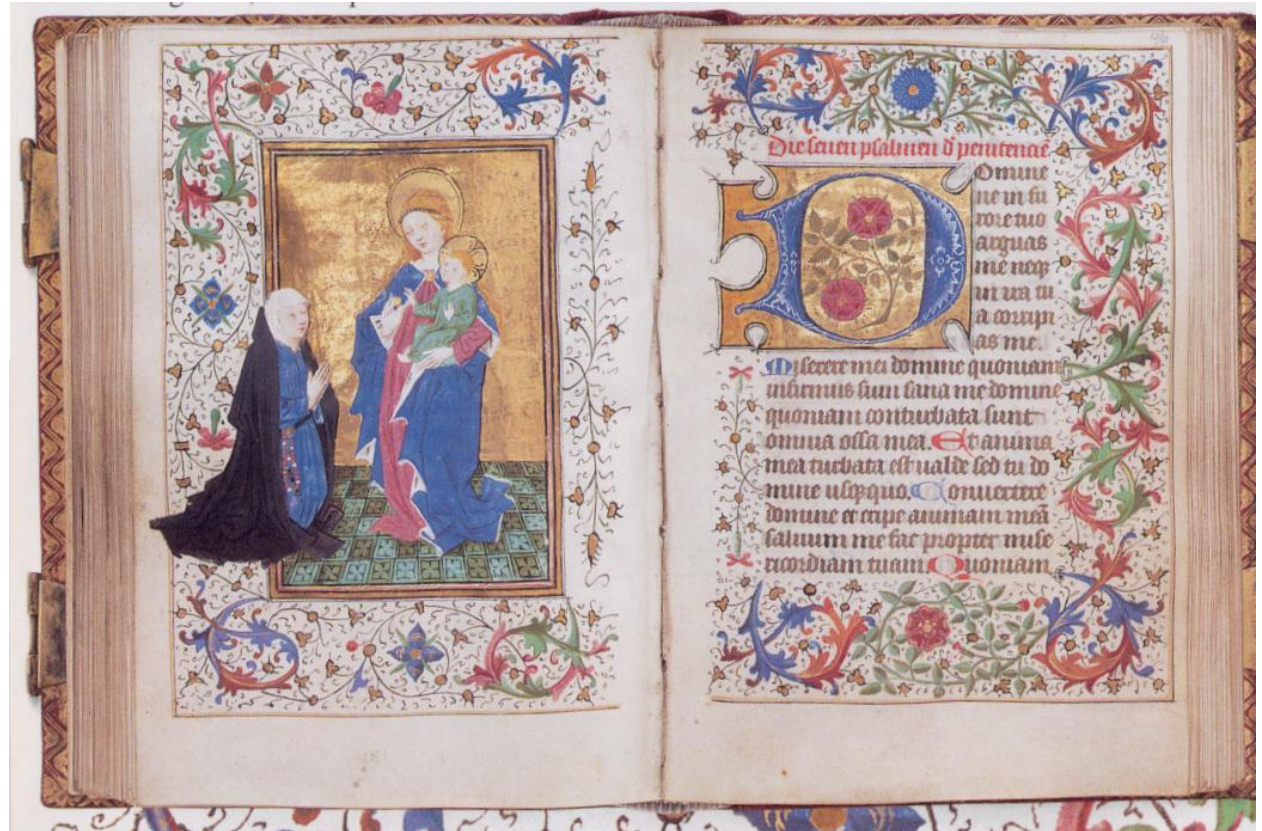 Die seuen psalmen d penitencie
Domine
ne in fu
rore tuo
arguas
me neqz
in ira tu
a corripi
as me.
Miserere mei domine quoniam
infirmus sum sana me domine
quoniam conturbata sunt
omnia ossa mea. Et anima
mea turbata est ualde sed tu do
mine usqzquo. Conuertere
domine et eripe animam meā
saluum me fac propter mise
ricordiam tuam Quoniam